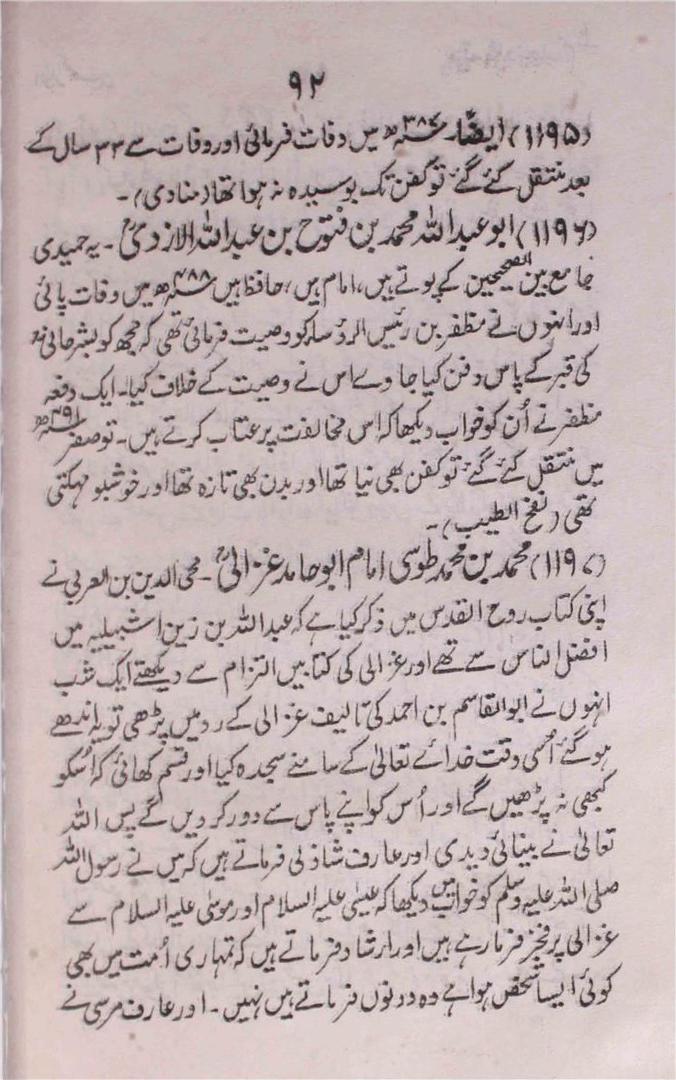 ۹۲
(۱۱۹۵) ایضًا ۳۸۷ھ میں وفات فرمائی اور وفات سے ۳۳ سال کے
بعد منتقل کئے گئے تو کفن تک بوسیدہ نہ ہوا تھا (منادی)۔
(۱۱۹۶) ابو عبداللہ محمد بن فتوح بن عبداللہ الازدیؒ۔ یہ حمیدی
جامع بین الصحیحین کے پوتے ہیں، امام ہیں، حافظ ہیں ۴۸۸ھ میں وفات پائی
اور انہوں نے مظفر بن رئیس الرؤساء کو وصیت فرمائی تھی کہ مجھ کو بشر حافیؒ
کی قبر کے پاس دفن کیا جاوے اس نے وصیت کے خلاف کیا۔ ایک دفعہ
مظفر نے اُن کو خواب دیکھا کہ اس مخالفت پر عتاب کرتے ہیں۔ تو صفر ۴۹۱ھ
میں منتقل کئے گئے تو کفن بھی نیا تھا اور بدن بھی تازہ تھا اور خوشبو مہکتی
تھی (نفح الطیب)۔
(۱۱۹۷) محمد بن محمد طوسی امام ابو حامد غزالیؒ۔ محی الدین بن العربی نے
اپنی کتاب روح القدس میں ذکر کیا ہے کہ عبداللہ بن زین اشبیلیہ میں
افضل الناس سے تھے اور غزالی کی کتابیں التزام سے دیکھتے ایک شب
انہوں نے ابوالقاسم بن احمد کی تالیف غزالی کے رد میں پڑھی تو یہ اندھے
ہو گئے اُسی وقت خدائے تعالیٰ کے سامنے سجدہ کیا اور قسم کھائی کہ اُسکو
کبھی نہ پڑھیں گے اور اُس کو اپنے پاس سے دور کر دیں گے پس اللہ
تعالیٰ نے بینائی دیدی اور عارف شاذلی فرماتے ہیں کہ میں نے رسول اللہ
صلی اللہ علیہ وسلم کو خواب میں دیکھا کہ عیسیٰ علیہ السلام اور موسیٰ علیہ السلام سے
غزالی پر فخر فرما رہے ہیں اور ارشاد فرماتے ہیں کہ تمہاری اُمت میں بھی
کوئی ایسا شخص ہوا ہے وہ دونوں فرماتے ہیں نہیں۔ اور عارف مرسی نے